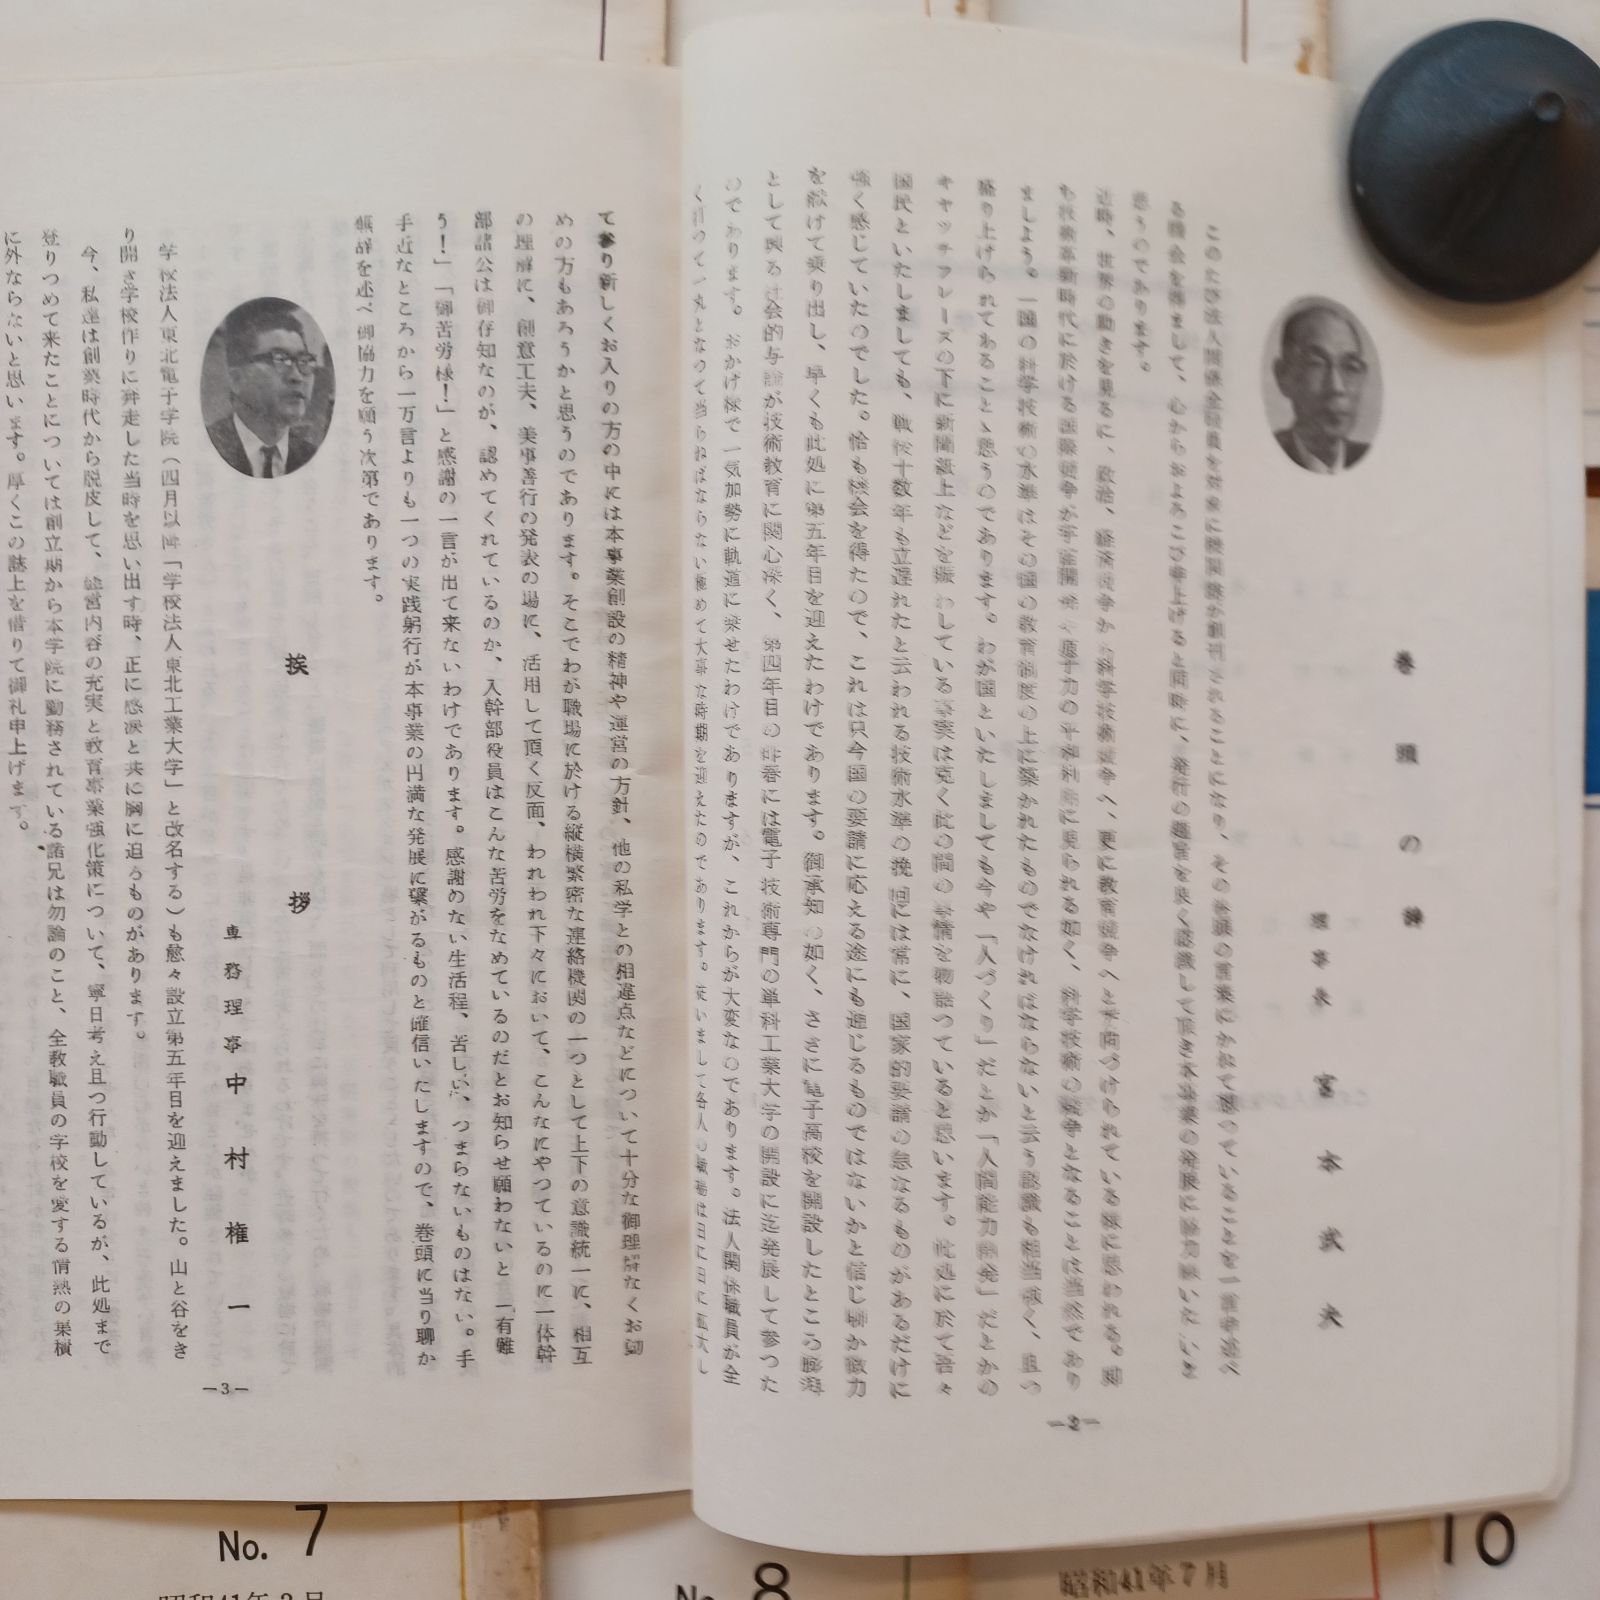 巻頭の辞
理事長 宮本武夫
このたび法人関係全職員を対象に機関誌が創刊されることになり、その発展の言葉にかねて思っていることを一言申述べ
る機会を得まして、心からおよろこび申上げると同時に、発行の趣旨を良く認識して頂き本事業の発展に協力願いたいと
思うのであります。
近時、世界の動きを見るに、政治、経済競争から科学技術競争へ、更に教育競争へと方向づけられている様に思われる。即
ち技術革新時代に於ける国際競争が宇宙開発や原子力の平和利用に見られる如く、科学技術の競争となることは当然であり
ましよう。一国の科学技術の水準はその国の教育制度の上に築かれたものでなければならないと云う認識も相当強く、且つ
盛り上げられてあることゝ思うのであります。わが国といたしましても今や「人づくり」だとか「人間能力開発」だとかの
キャッチフレーズの下に新聞紙上などを賑わしている事実は克く此の間の事情を物語つていると思います。此処に於て吾々
国民といたしましても、戦後十数年も立遅れたと云われる技術水準の挽回には常に、国家的要請の急なるものがあるだけに
強く感じていたのでした。恰も機会を得たので、これは只今国の要請に応える途にも通じるものではないかと信じ聊か微力
を献げて乗り出し、早くも此処に第五年目を迎えたわけであります。御承知の如く、さきに電子高校を開設したところ
として興る社会的与論が技術教育に関心深く、第四年目の昨春には電子技術専門の単科工業大学の開設に迄発展して参つた
のであります。おかげ様で一気加勢に軌道に乗せたわけでありますが、これからが大変なのであります。法人関係職員が全
く打つて一丸となつて当らねばならない極めて大事な時期を迎えたのであります。従いまして各人の職場は日に日に拡大し
—2—
て参り新しくお入りの方の中には本事業創設の精神や運営の方針、他の私学との相違点などについて十分な御理解なくお勤
めの方もあろうかと思うのであります。そこでわが職場に於ける縦横緊密な連絡機関の一つとして上下の意識統一に、相互
の理解に、創意工夫、美事善行の発表の場に、活用して頂く反面、われわれ下々において、こんなにやつているのに一体幹
部諸公は御存知なのか、認めてくれているのか、入幹部役員はこんな苦労をなめているのだとお知らせ願わないと「有難
う!」「御苦労様!」と感謝の一言が出て来ないわけであります。感謝のない生活程、苦しい、つまらないものはない。手
手近なところから一万言よりも一つの実践躬行が本事業の円満な発展に繋がるものと確信いたしますので、巻頭に当り聊か
蕪辞を述べ御協力を願う次第であります。
挨拶
専務理事 中村権一
学校法人東北電子学院(四月以降「学校法人東北工業大学」と改名する)も愈々設立第五年目を迎えました。山と谷をき
り開き学校作りに奔走した当時を思い出す時、正に感涙と共に胸に迫るものがあります。
今、私達は創業時代から脱皮して、経営内容の充実と教育事業強化策について、寧日考え且つ行動しているが、此処まで
登りつめて来たことについては創立期から本学院に勤務されている諸兄は勿論のこと、全教職員の学校を愛する情熱の累積
に外ならないと思います。厚くこの誌上を借りて御礼申上げます。
—3—
No. 7
昭和41年3月
No. 8
昭和41年7月
10